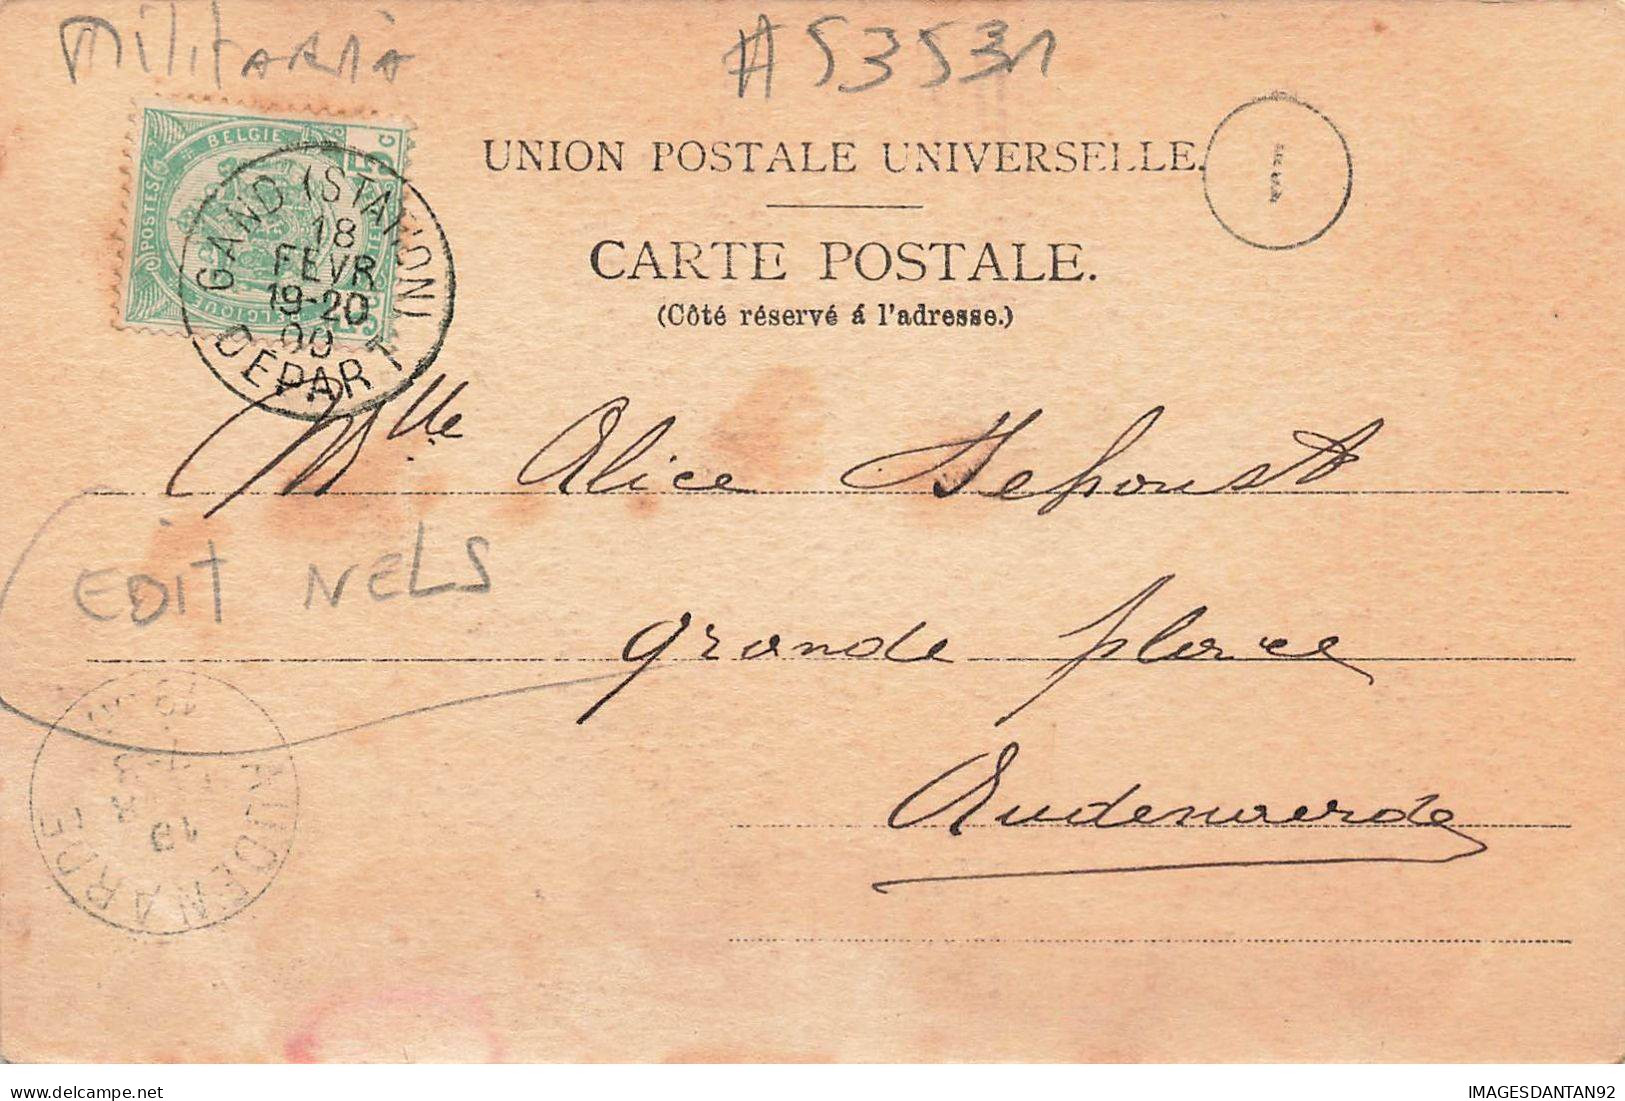 Militaria
#53531
UNION POSTALE UNIVERSELLE.
CARTE POSTALE.
(Côté réservé á l'adresse.)
POSTES
BELGIE
BELGIQUE
GAND (STATION)
18
FEVR
19-20
00
DEPART
1
Mlle Alice
EDIT NELS
grande place
Audenaerde
AUDENARDE
19
IMAGESDANTAN92